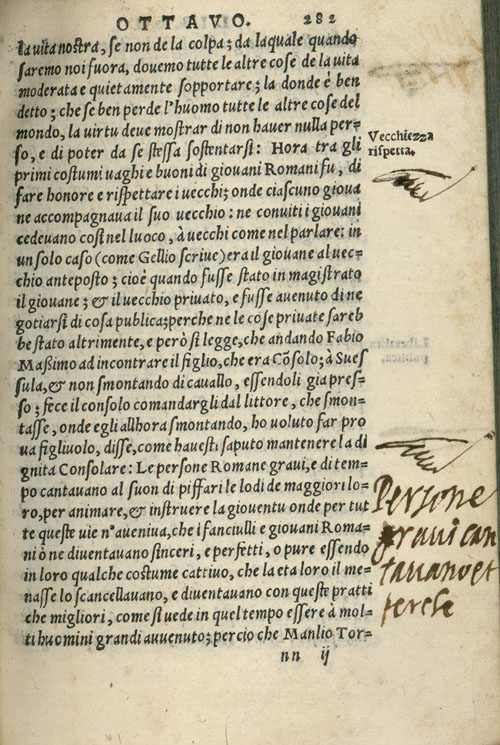 OTTAVO. 282
la vita nostra, se non de la colpa; da laquale quando
saremo noi fuora, douemo tutte le altre cose de la uita
moderata e quietamente sopportare; la donde è ben
detto; che se ben perde l'huomo tutte le altre cose del
mondo, la uirtu deue mostrar di non hauer nulla per=
so, e di poter da se stessa sostentarsi: Hora tra gli
primi costumi uaghi e buoni di giouani Romani fu, di
fare honore e rispettare i uecchi; onde ciascuno gioua
ne accompagnaua il suo uecchio: ne conuiti i giouani
cedeuano cosi nel luoco, à uecchi come nel parlare: in
un solo caso (come Gellio scriue) era il giouane al uec=
chio anteposto; cioè quando fusse stato in magistrato
il giouane; & il uecchio priuato, e fusse auenuto di ne
gotiarsi di cosa publica; perche ne le cose priuate sareb
be stato altrimente, e però si legge, che andando Fabio
Maßimo ad incontrare il figlio, che era Cõsolo; à Sues
sula, & non smontando di cauallo, essendoli gia pres=
so; fece il consolo comandargli dal littore, che smon=
tasse, onde egli allhora smontando, ho uoluto far pro
ua figliuolo, disse, come hauesti saputo mantenere la di
gnita Consolare: Le persone Romane graui, e di tem=
po cantauano al suon di piffari le lodi de maggiori lo=
ro, per animare, & instruere la giouentu onde per tut
te queste uie n'aueniua, che i fanciulli e giouani Roma=
ni ò ne diuentauano sinceri, e perfetti, o pure essendo
in loro qualche costume cattiuo, che la eta loro il me=
nasse lo scancellauano, e diuentauano con queste pratti
che migliori, come si uede in quel tempo essere à mol=
ti huomini grandi auuenuto; percio che Manlio Tor=
nn ij
Vecchiezza
rispetta.
Persone
graui can
tauano et